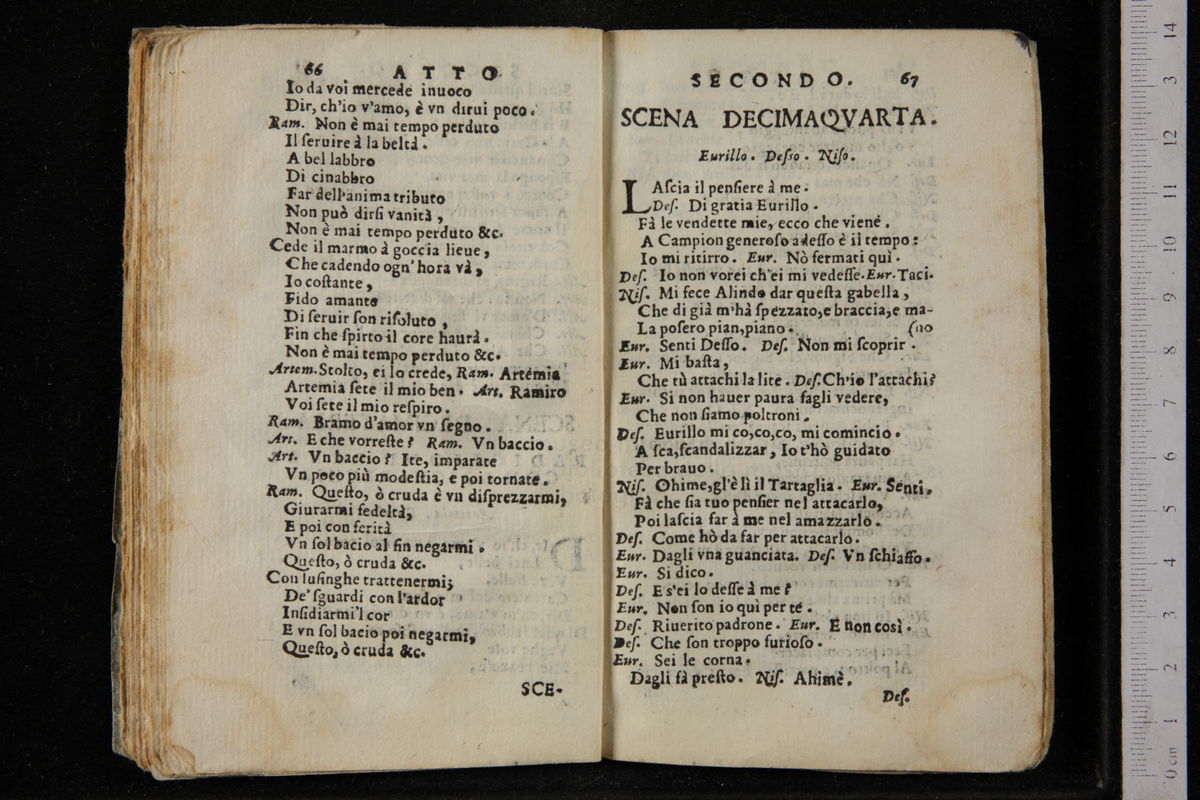 66 ATTO
Io da voi mercede inuoco
Dir, ch'io v'amo, è vn dirui poco.
Ram. Non è mai tempo perduto
Il ſeruire à la beltà.
A bel labbro
Di cinabbro
Far dell'anima tributo
Non può dirſi vanità,
Non è mai tempo perduto &c.
Cede il marmo à goccia lieue,
Che cadendo ogn'hora và,
Io coſtante,
Fido amante
Di ſeruir ſon riſoluto,
Fin che ſpirto il core haurà.
Non è mai tempo perduto &c.
Artem. Stolto, ei lo crede, Ram. Artemia
Artemia ſete il mio ben. Art. Ramiro
Voi ſete il mio reſpiro.
Ram. Bramo d'amor vn ſegno.
Art. E che vorreſte? Ram. Vn baccio.
Art. Vn baccio? Ite, imparate
Vn poco più modeſtia, e poi tornate.
Ram. Queſto, ò cruda è vn diſprezzarmi,
Giurarmi fedeltà,
E poi con ferità
Vn ſol bacio al fin negarmi.
Queſto, ò cruda &c.
Con luſinghe trattenermi;
De' ſguardi con l'ardor
Inſidiarmi'l cor
E vn ſol bacio poi negarmi,
Queſto, ò cruda &c.
SCE-
SECONDO. 67
SCENA DECIMAQVARTA.
Eurillo. Deſſo. Niſo.
LAſcia il penſiere à me.
Deſ. Di gratia Eurillo.
Fà le vendette mie, ecco che viene.
A Campion generoſo adeſſo è il tempo:
Io mi ritirro. Eur. Nò fermati quì.
Deſ. Io non vorei ch'ei mi vedeſſe. Eur. Taci.
Niſ. Mi fece Alindo dar queſta gabella,
Che di già m'hà ſpezzato, e braccia, e ma-
La poſero pian, piano. (no
Eur. Senti Deſſo. Deſ. Non mi ſcoprir.
Eur. Mi baſta,
Che tù attachi la lite. Deſ. Ch'io l'attachi?
Eur. Si non hauer paura fagli vedere,
Che non ſiamo poltroni.
Deſ. Eurillo mi co,co,co, mi comincio.
A ſca,ſcandalizzar, Io t'hò guidato
Per brauo.
Niſ. Ohime, gl'è lì il Tartaglia. Eur. Senti.
Fà che ſia tuo penſier nel attacarlo,
Poi laſcia far à me nel amazzarlo.
Deſ. Come hò da far per attacarlo.
Eur. Dagli vna guanciata. Deſ. Vn ſchiaffo.
Eur. Si dico.
Deſ. E s'ei lo deſſe à me?
Eur. Non ſon io quì per té.
Deſ. Riuerito padrone. Eur. E non così.
Deſ. Che ſon troppo furioſo.
Eur. Sei le corna.
Dagli fà preſto. Niſ. Ahimè.
Deſ.
0 cm 1 2 3 4 5 6 7 8 9 10 11 12 3 14